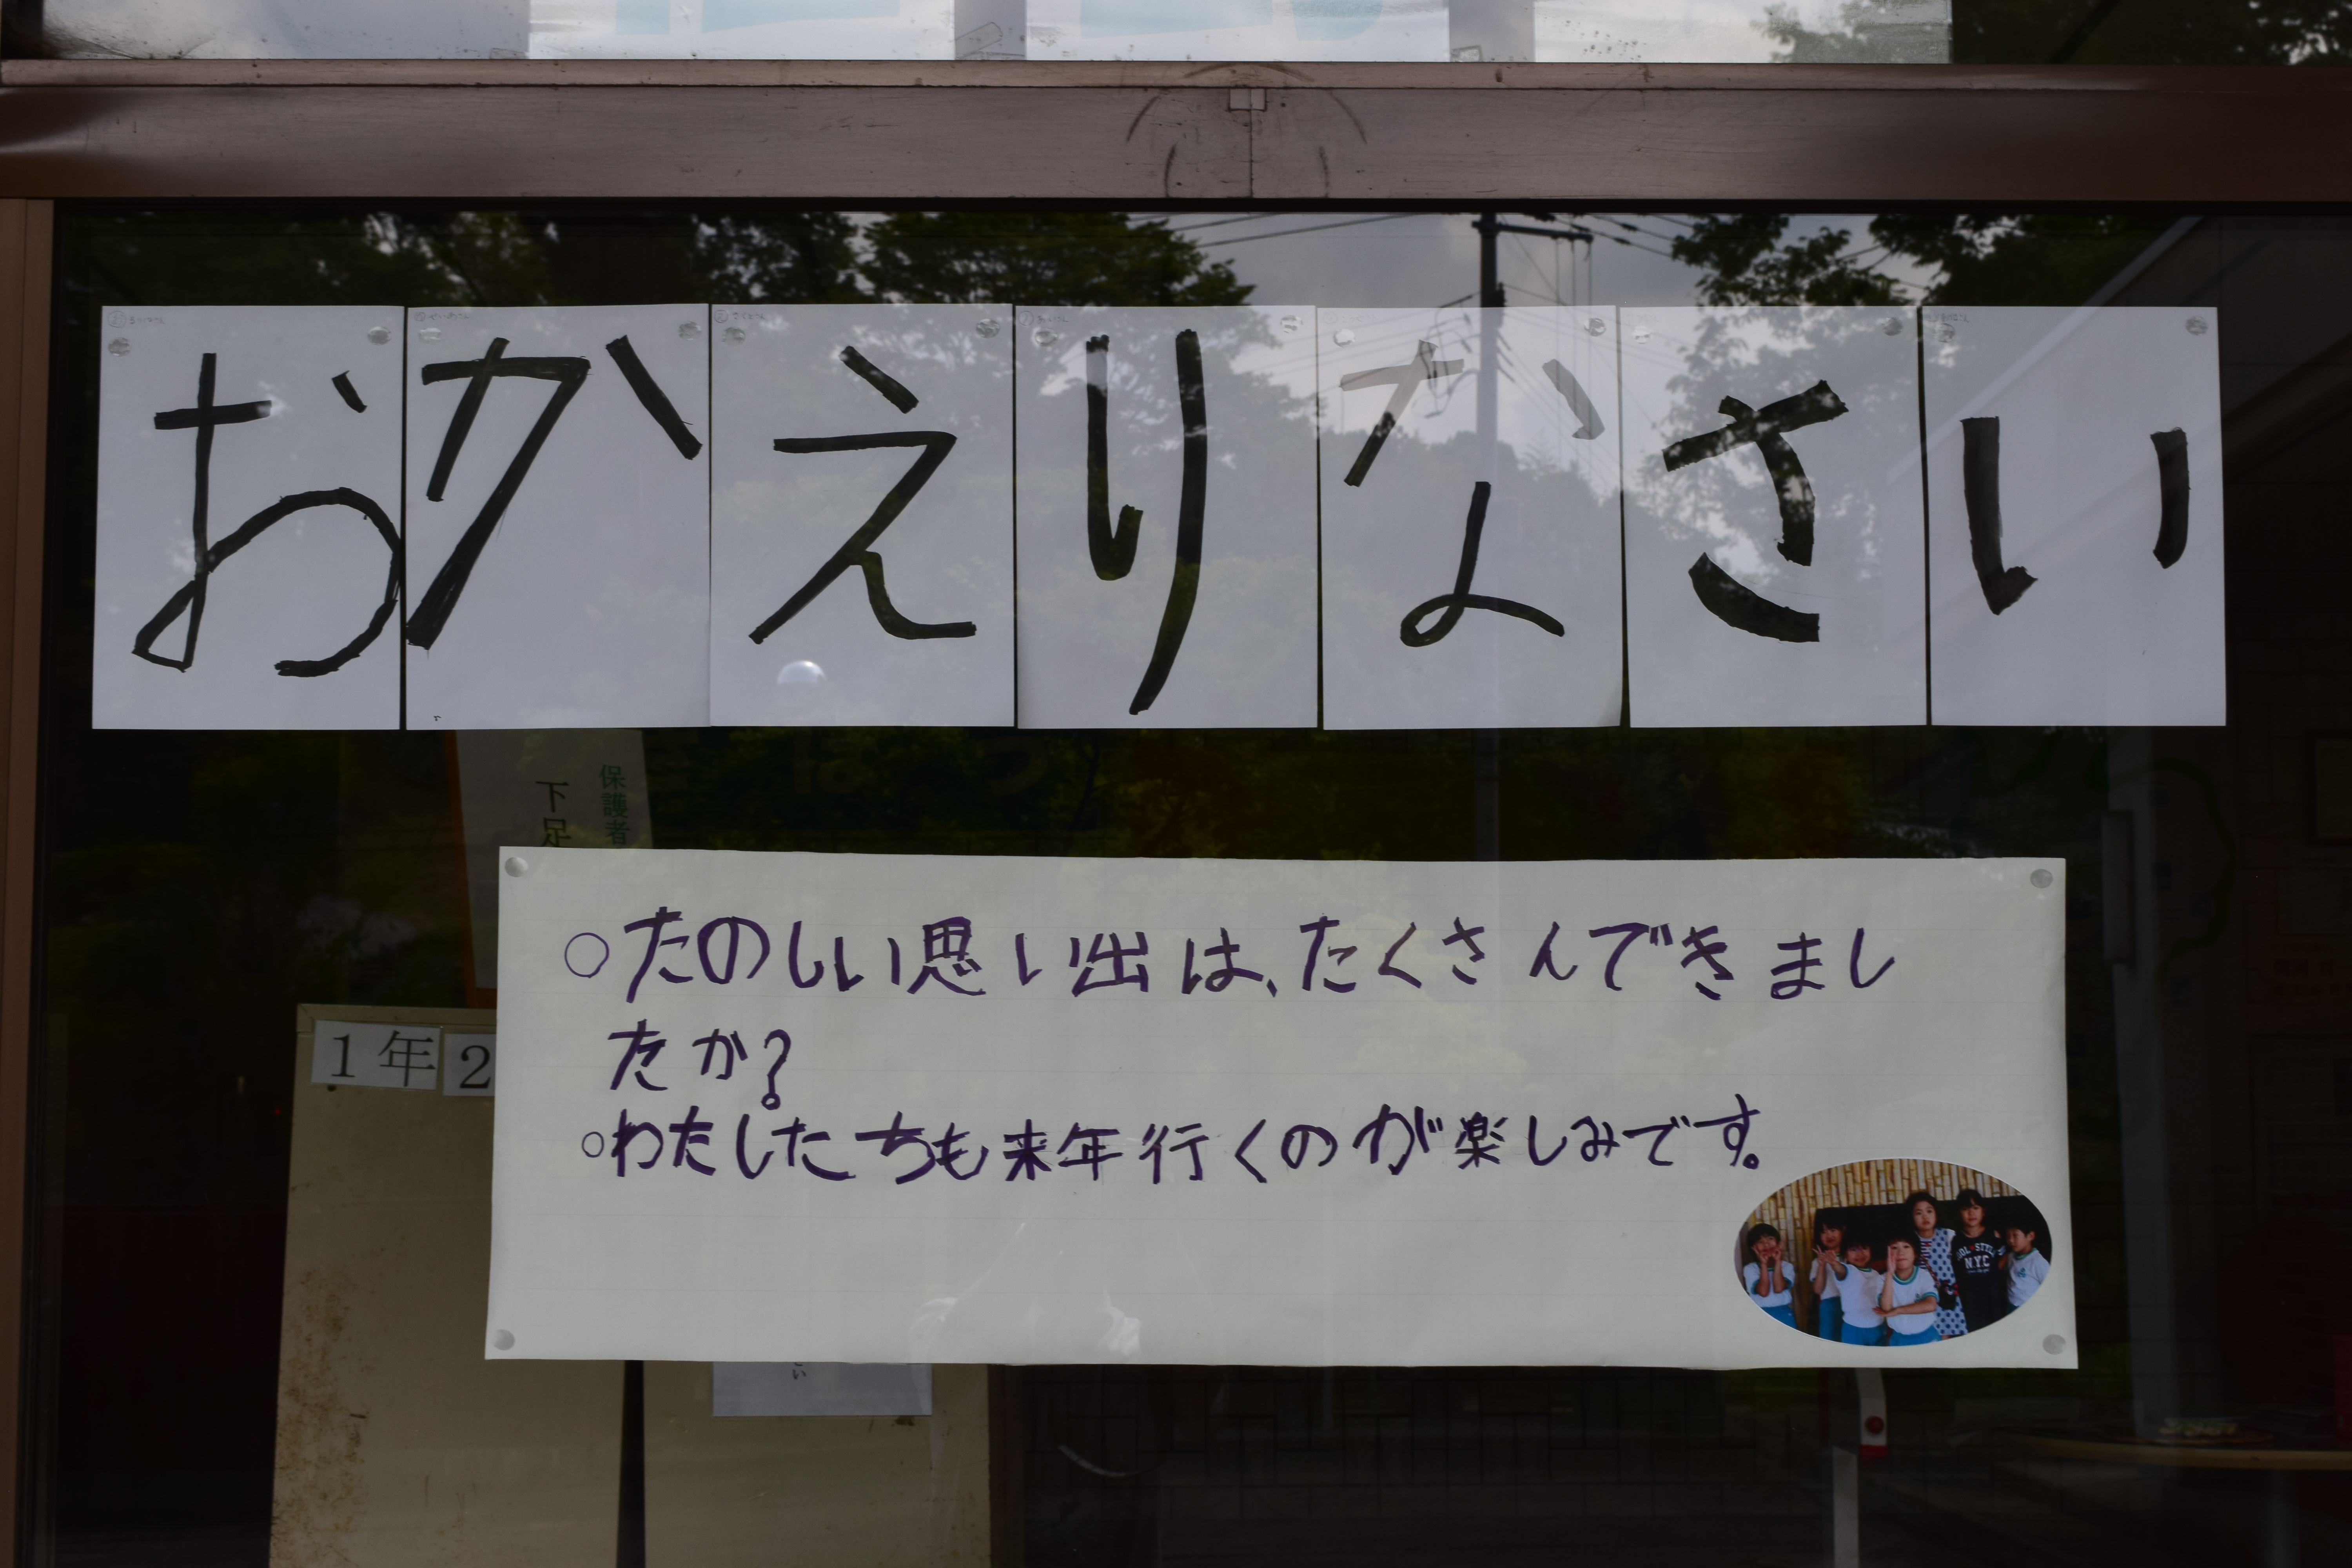 おかえりなさい
保護者
下足
1年2
○たのしい思い出は、たくさんできまし
たか?
○わたしたちも来年行くのが楽しみです。
N.Y.C